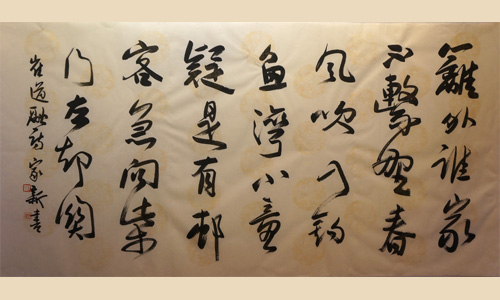 籬外誰家
不繫船春
風吹入鈞
魚灣小童
疑是有邨
客急向柴
门去却關
崔道融詩 家新書